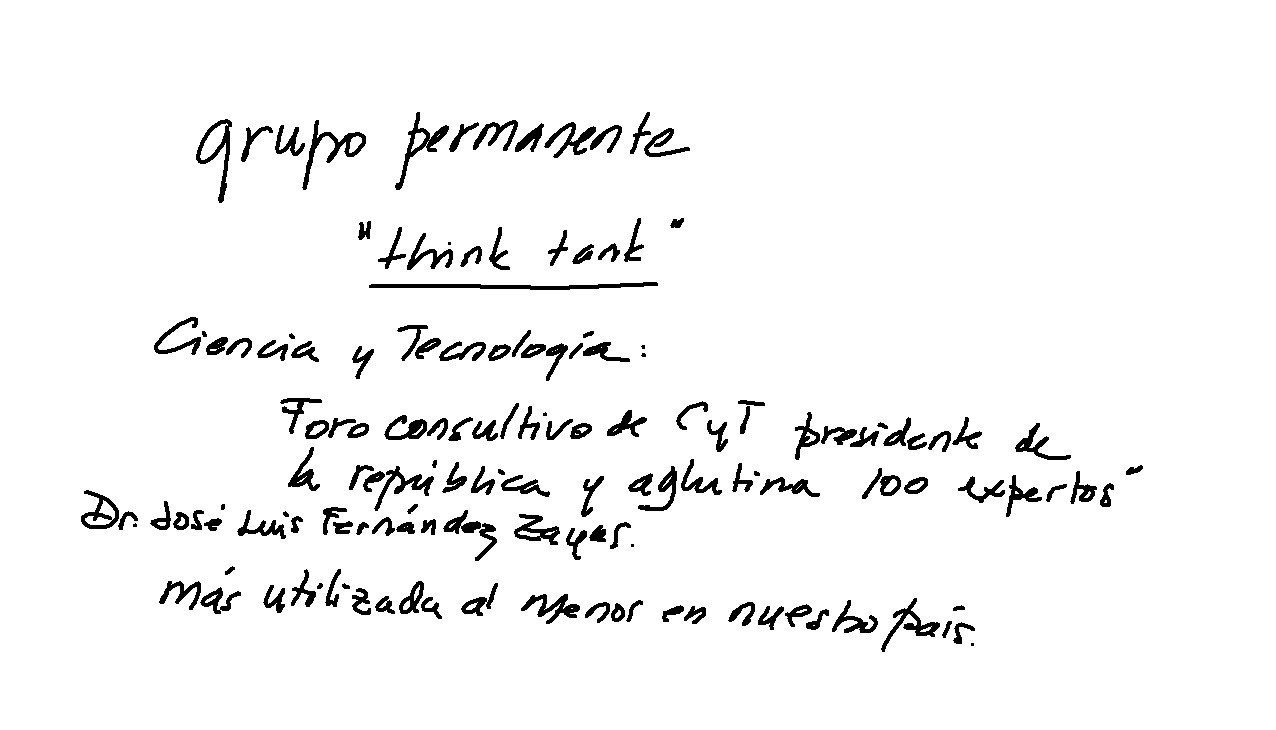 grupo permanente
"think tank"
Ciencia y Tecnología:
Foro consultivo de CyT presidente de
la república y aglutina 100 expertos"
Dr. José Luis Fernández Zayas.
más utilizada al menos en nuestro país.